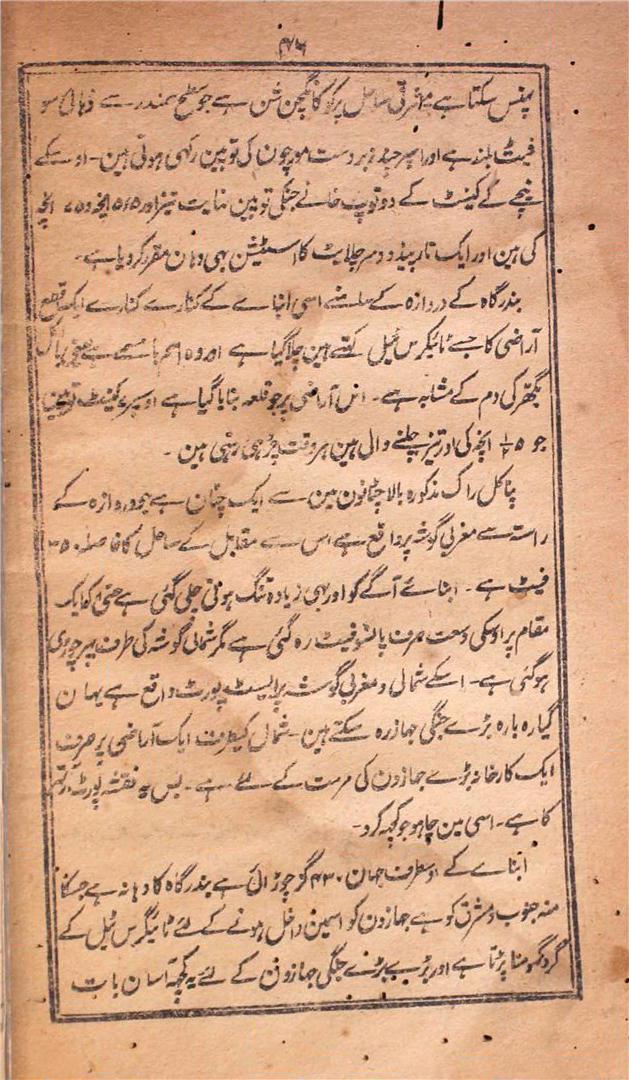 پہنس سکتا ہے مشرقی ساحل پر گولڈن ہے جو سطح سمندر سے ڈہائی سو
فیٹ بلند ہے اور اسپر جدید زبردست مورچون کی توپین رکہی ہوئی ہین۔ اوسکے
نیچے کے کینٹ کے دو توپ خانے جنگی توپین نہایت تیز اور ۵ء۵ انچہ و ۷۵ انچہ
کی ہین اور ایک تارپیڈو و سرچلایٹ کا اسٹیشن بہی وہان مقرر کر دیا ہے۔
بندرگاہ کے دروازہ کے سامنے اسی ابنائے کے کنارے کنارے ایک قطع
آراضی کا جسے ٹائیگرس ٹیل کہتے ہین چلا گیا ہے اور وہ
بگہر کی دم کے مشابہ ہے۔ اس آراضی پر جو قلعہ بنایا گیا ہے اوسپر کینٹ توپین
جو ۵ انچہ کی اور تیز چلنے والی ہین ہر وقت چڑہی رہتی ہین۔
پناکل راک مذکورہ بالا چٹانون مین سے ایک چٹان ہے جو دروازہ کے
راستہ سے مغربی گوشہ پر واقع ہے اس سے مقابل کے ساحل کا فاصلہ ۳۵۰
فیٹ ہے۔ ابنائے آگے کو اور بہی زیادہ تنگ ہوتی چلی گئی ہے حتی کہ ایک
مقام پر اوسکی وسعت صرف پانسو فیٹ رہ گئی ہے مگر شمالی گوشہ کی طرف پہر چوڑی
ہو گئی ہے۔ اسکے شمال و مغربی گوشہ پر ایسٹ پورٹ واقع ہے یہان
گیارہ بارہ بڑے جنگی جہاز رہ سکتے ہین۔ شمال کیطرف ایک آراضی پر صرف
ایک کارخانہ بڑے جہازون کی مرمت کے لئے ہے۔ بس یہ نقشہ پورٹ آرتہر
کا ہے۔ اسی مین چاہو جو کچہہ کرو۔
ابنائے کے اوسطرف جہان ۴۳۰ گز چوڑائی ہے بندرگاہ کا دہانہ ہے جسکا
منہ جنوب و مشرق کو ہے جہازون کو اسمین داخل ہونے کے لئے ٹائیگرس ٹیل کے
گرد گہومنا پڑتا ہے اور بڑے بڑے جنگی جہازون کے لئے یہ کچہہ آسان بات